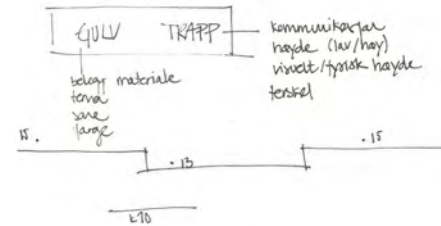 GULV TRAPP
kommunikasjon
høyde (lav/høy)
visuelt/fysisk høyde
terskel
belegg materiale
sone
farge
15.
.13
.15
k70